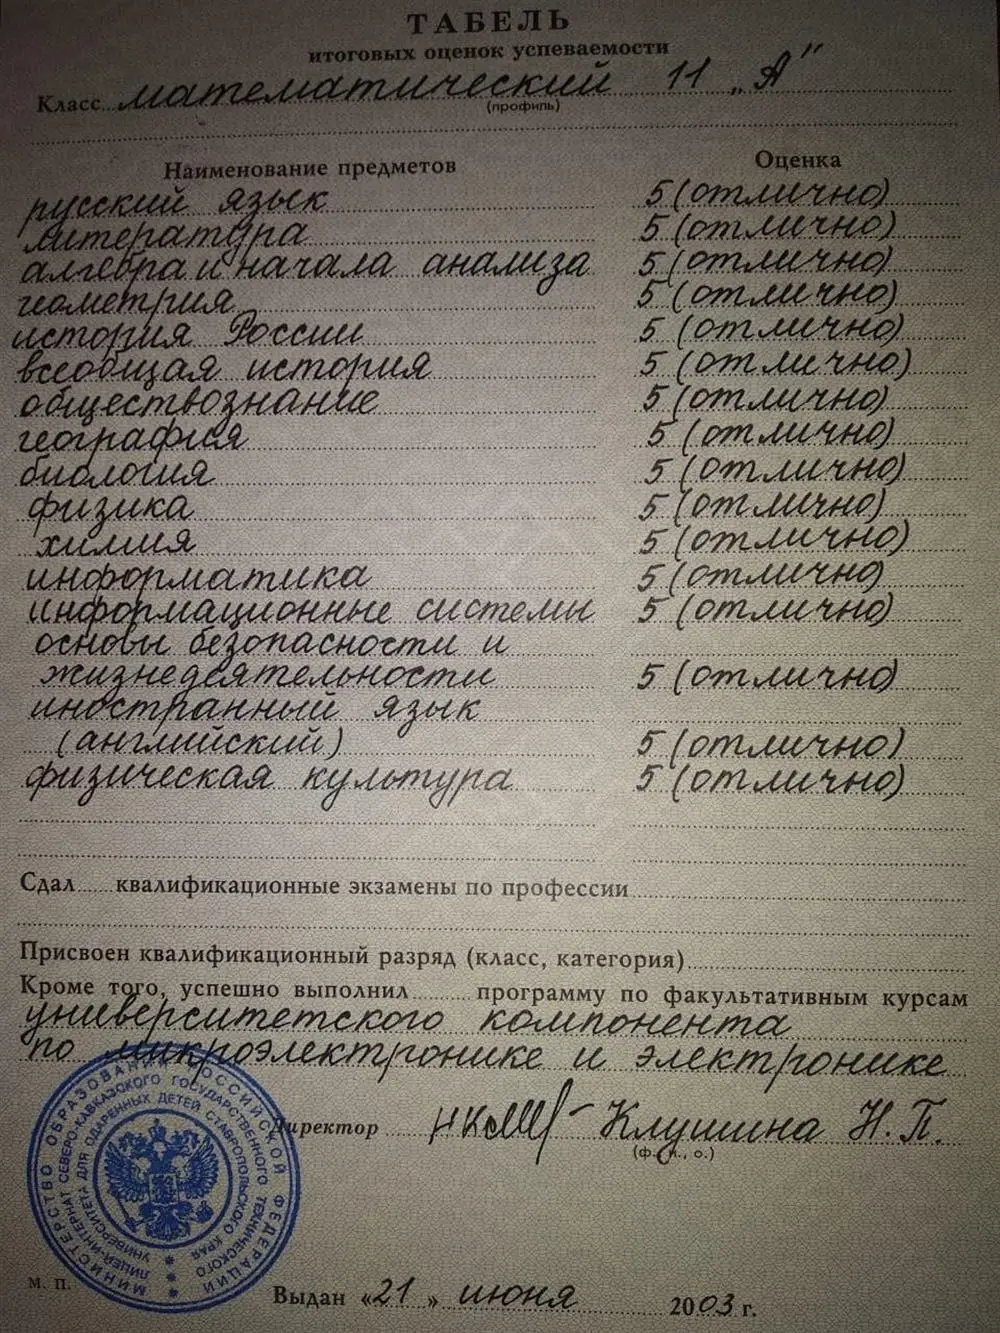 ТАБЕЛЬ
итоговых оценок успеваемости
Класс математический 11 „А"
(профиль)
Наименование предметов Оценка
русский язык 5 (отлично)
литература 5 (отлично)
алгебра и начала анализа 5 (отлично)
геометрия 5 (отлично)
история России 5 (отлично)
всеобщая история 5 (отлично)
обществознание 5 (отлично)
география 5 (отлично)
биология 5 (отлично)
физика 5 (отлично)
химия 5 (отлично)
информатика 5 (отлично)
информационные системы 5 (отлично)
основы безопасности и
жизнедеятельности 5 (отлично)
иностранный язык
(английский) 5 (отлично)
физическая культура 5 (отлично)
Сдал квалификационные экзамены по профессии
Присвоен квалификационный разряд (класс, категория)
Кроме того, успешно выполнил программу по факультативным курсам
университетского компонента
по микроэлектронике и электронике
Директор Клушина Н.П.
(ф., и., о.)
МИНИСТЕРСТВО ОБРАЗОВАНИЯ РОССИЙСКОЙ ФЕДЕРАЦИИ
СЕВЕРО-КАВКАЗСКОГО ГОСУДАРСТВЕННОГО ТЕХНИЧЕСКОГО УНИВЕРСИТЕТА
ЛИЦЕЙ-ИНТЕРНАТ ДЛЯ ОДАРЕННЫХ ДЕТЕЙ СТАВРОПОЛЬСКОГО КРАЯ
М. П.
Выдан «21» июня 2003 г.